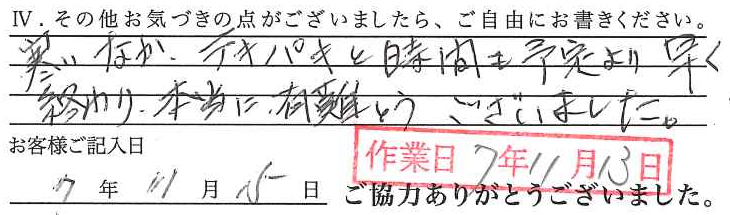 Ⅳ．その他お気づきの点がございましたら、ご自由にお書きください。
寒いなか、テキパキと時間も予定より早く
終わり、本当に有難とうございました。
お客様ご記入日
作業日 7年11月13日
7年11月15日 ご協力ありがとうございました。